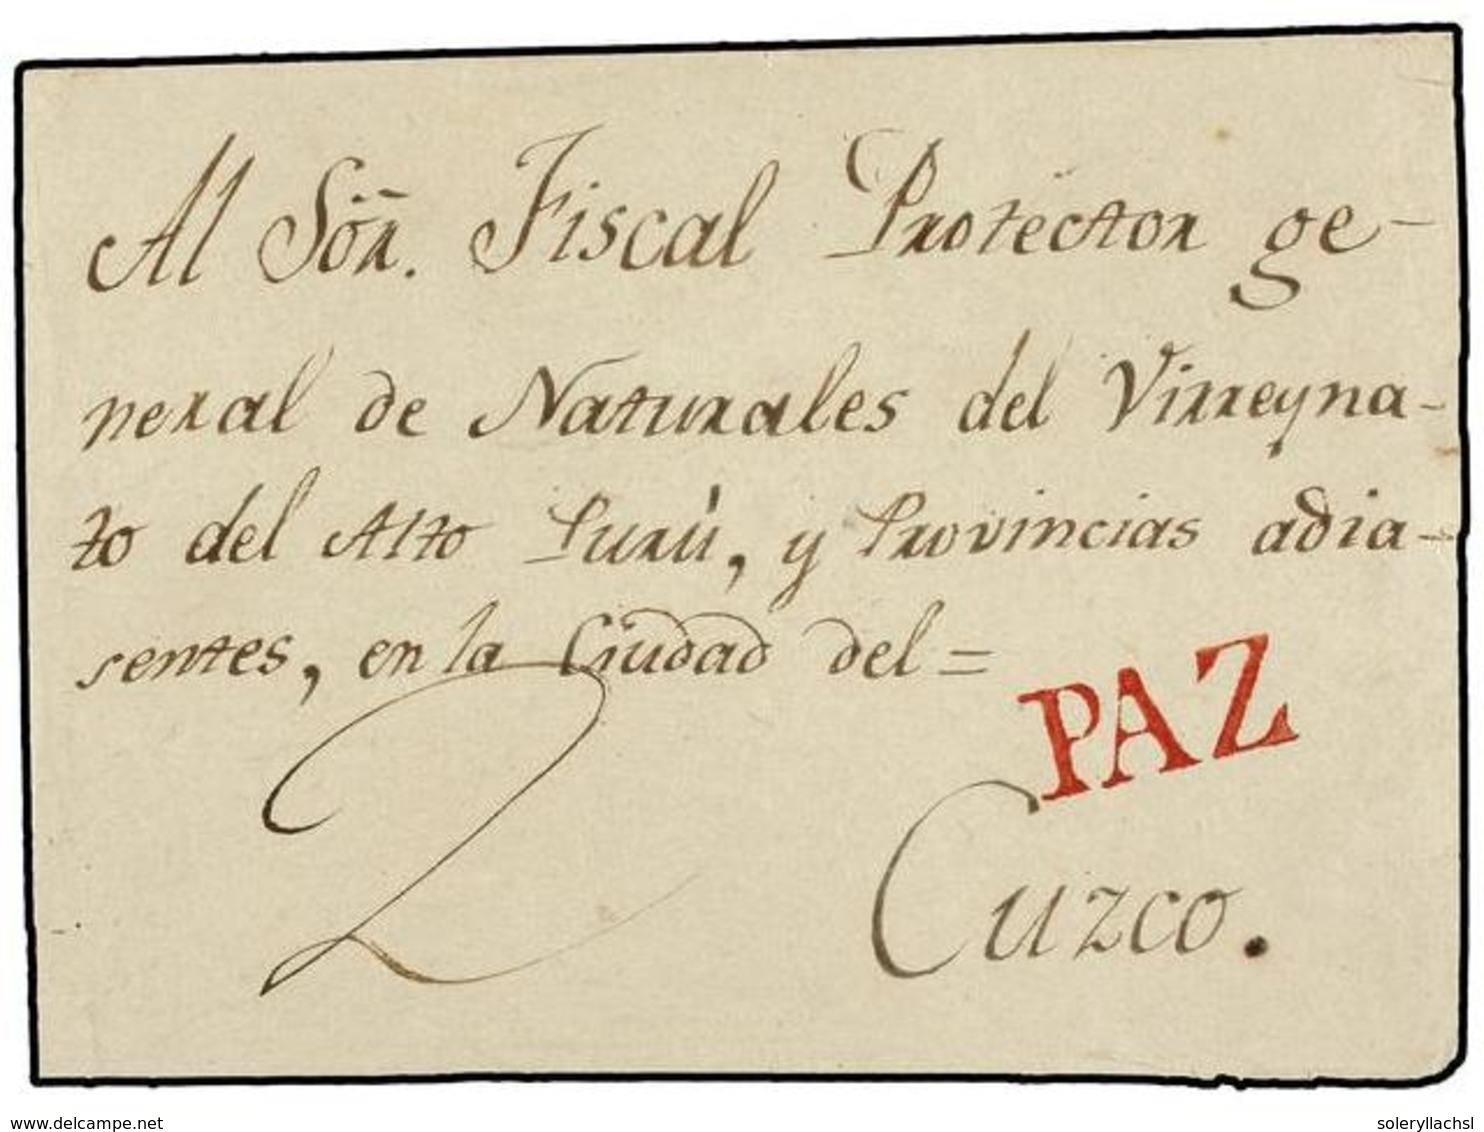 Al Sōr. Fiscal Protector ge-
neral de Naturales del Virreyna-
to del Alto Purú, y Provincias adia-
sentes, en la Ciudad del =
PAZ
2
Cuzco.
www.delcampe.net
soleryllachsl